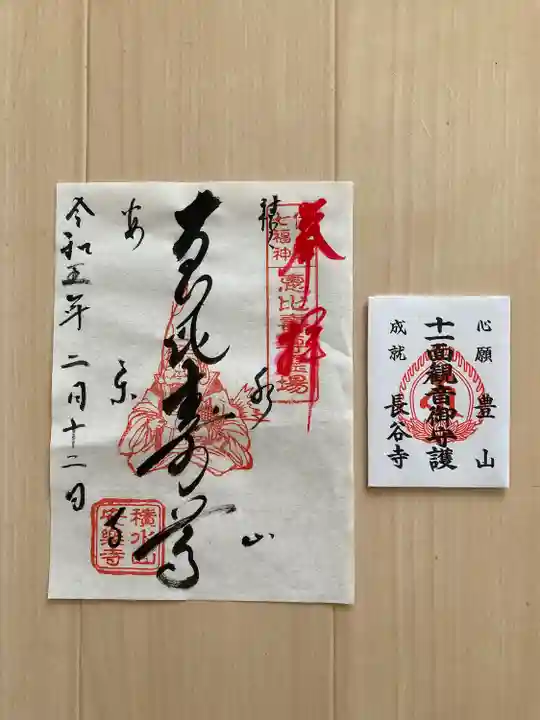 奉拝
七福神
恵比寿尊霊場
積水山
恵比寿尊
安楽寺
令和五年二月十二日
積水山
安樂寺
心願
成就
豊山
十一面観音御守護
長谷寺